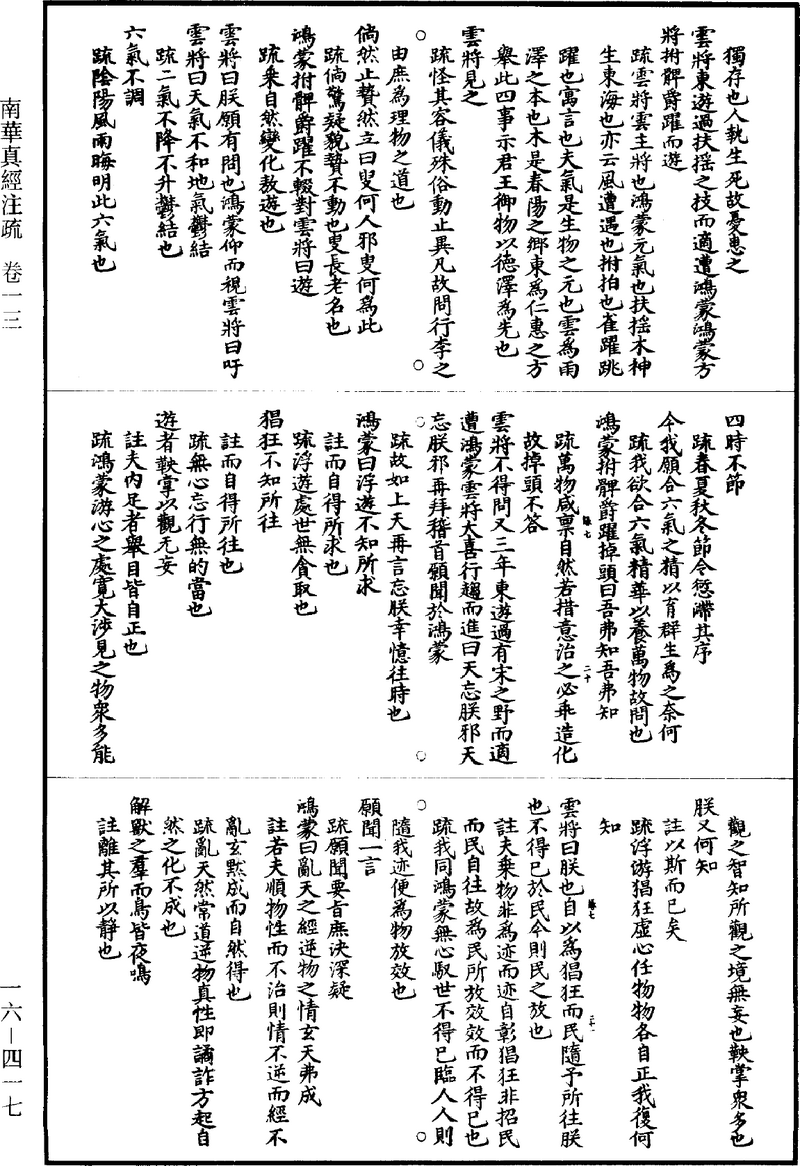 獨存也人執生死故憂患之
雲將東遊過扶搖之技而適遭鴻蒙鴻蒙方
將拊髀爵躍而遊
疏雲將雲主將也鴻蒙元氣也扶搖木神
生東海也亦云風遭遇也拊拍也雀躍跳
躍也寓言也夫氣是生物之元也雲為雨
澤之本也木是春陽之鄉東為仁惠之方
舉此四事示君王御物以德澤為先也
雲將見之
疏怪其容儀殊俗動止異凡故問行李之
由庶為理物之道也
倘然止贄然立曰叟何人邪叟何為此
疏倘驚疑貌贄不動也叟長老名也
鴻蒙拊髀爵躍不輟對雲將曰遊
疏乘自然變化敖遊也
雲將曰朕願有問也鴻蒙仰而視雲將曰吁
雲將曰天氣不和地氣鬱結
疏二氣不降不升鬱結也
六氣不調
疏陰陽風雨晦明此六氣也
四時不節
疏春夏秋冬節令愆滯其序
今我願合六氣之精以育群生為之奈何
疏我欲合六氣精華以養萬物故問也
鴻蒙拊髀爵躍掉頭曰吾弗知吾弗知
疏萬物咸稟自然若措意治之必乖造化
故掉頭不答
雲將不得問又三年東遊過有宋之野而適
遭鴻蒙雲將大喜行趨而進曰天忘朕邪天
忘朕邪再拜稽首願聞於鴻蒙
疏故如上天再言忘朕幸憶往時也
鴻蒙曰浮遊不知所求
註而自得所求也
疏浮遊處世無貪取也
猖狂不知所往
註而自得所往也
疏無心忘行無的當也
遊者鞅掌以觀无妄
註夫內足者舉目皆自正也
疏鴻蒙游心之處寬大涉見之物眾多能
觀之智知所觀之境無妄也鞅掌眾多也
朕又何知
註以斯而已矣
疏浮游猖狂虛心任物物各自正我復何
知
雲將曰朕也自以為猖狂而民隨予所往朕
也不得已於民今則民之放也
註夫乘物非為迹而迹自彰猖狂非招民
而民自往故為民所放效效而不得已也
疏我同鴻蒙無心馭世不得已臨人人則
隨我迹便為物放效也
願聞一言
疏願聞要旨庶決深疑
鴻蒙曰亂天之經逆物之情玄天弗成
註若夫順物性而不治則情不逆而經不
亂玄默成而自然得也
疏亂天然常道逆物真性即譎詐方起自
然之化不成也
解獸之羣而鳥皆夜鳴
註離其所以靜也
南華真經注疏　卷一三
一六－四一七